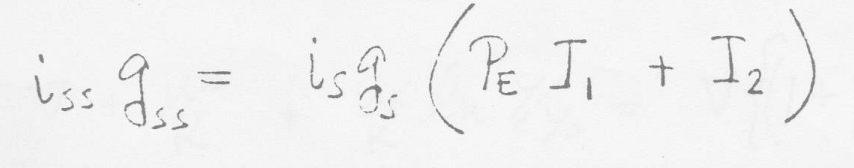 i_ss g_ss = i_s g_s ( P_E I_1 + I_2 )